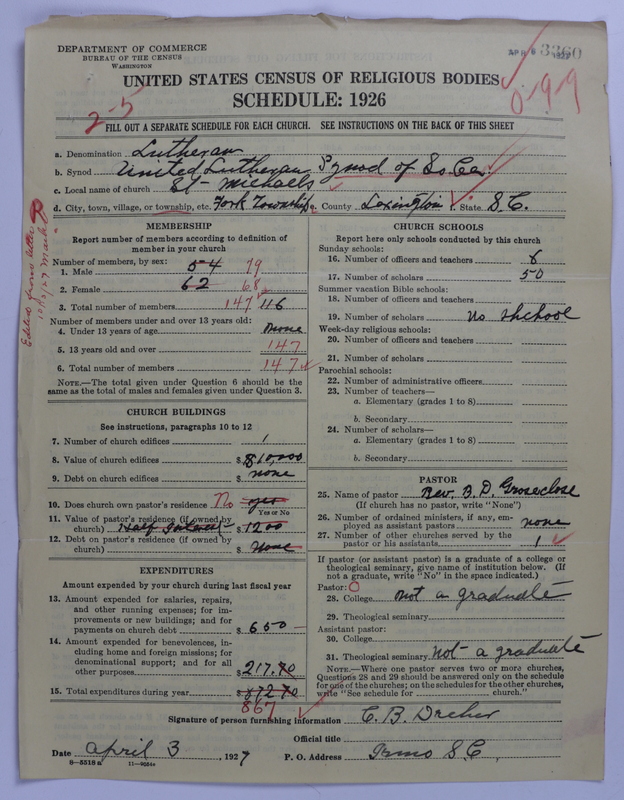 DEPARTMENT OF COMMERCE
BUREAU OF THE CENSUS
WASHINGTON
APR 8 1927 3360
UNITED STATES CENSUS OF RELIGIOUS BODIES
SCHEDULE: 1926
2-5
0-9-9
FILL OUT A SEPARATE SCHEDULE FOR EACH CHURCH. SEE INSTRUCTIONS ON THE BACK OF THIS SHEET
a. Denomination Lutheran
b. Synod United Lutheran Synod of So Ca.
c. Local name of church St- Michaels
d. City, town, village, or township, etc. Fork Township e. County Lexington f. State S.C.
MEMBERSHIP
Report number of members according to definition of
member in your church
Number of members, by sex:
1. Male 54 79
2. Female 62 68
3. Total number of members 147 116
Number of members under and over 13 years old:
4. Under 13 years of age none
5. 13 years old and over 147
6. Total number of members 147
NOTE.—The total given under Question 6 should be the
same as the total of males and females given under Question 3.
CHURCH BUILDINGS
See instructions, paragraphs 10 to 12
7. Number of church edifices 1
8. Value of church edifices $ 10,000
9. Debt on church edifices $ none
10. Does church own pastor's residence No yes
Yes or No
11. Value of pastor's residence (if owned by
church) Half interest $ 1200
12. Debt on pastor's residence (if owned by
church) $ none
EXPENDITURES
Amount expended by your church during last fiscal year
13. Amount expended for salaries, repairs,
and other running expenses; for im-
provements or new buildings; and for
payments on church debt $ 650 —
14. Amount expended for benevolences, in-
cluding home and foreign missions; for
denominational support; and for all
other purposes $ 217.70
15. Total expenditures during year $ 872 70
867
CHURCH SCHOOLS
Report here only schools conducted by this church
Sunday schools:
16. Number of officers and teachers 8
17. Number of scholars 50
Summer vacation Bible schools:
18. Number of officers and teachers
19. Number of scholars No school
Week-day religious schools:
20. Number of officers and teachers
21. Number of scholars
Parochial schools:
22. Number of administrative officers
23. Number of teachers—
a. Elementary (grades 1 to 8)
b. Secondary
24. Number of scholars—
a. Elementary (grades 1 to 8)
b. Secondary
PASTOR
25. Name of pastor Rev. B. D. Groseclose
(If church has no pastor, write "None")
26. Number of ordained ministers, if any, em-
ployed as assistant pastors none
27. Number of other churches served by the
pastor or his assistants 1
If pastor (or assistant pastor) is a graduate of a college or
theological seminary, give name of institution below. (If
not a graduate, write "No" in the space indicated.)
Pastor: O
28. College not a graduate
29. Theological seminary
Assistant pastor:
30. College
31. Theological seminary not a graduate
NOTE.—Where one pastor serves two or more churches,
Questions 28 and 29 should be answered only on the schedule
for one of the churches; on the schedules for the other churches,
write "See schedule for church."
Signature of person furnishing information C. B. Dreher
Official title
Date April 3, 1927 P. O. Address Irmo S C
8-5518 a 11-9054